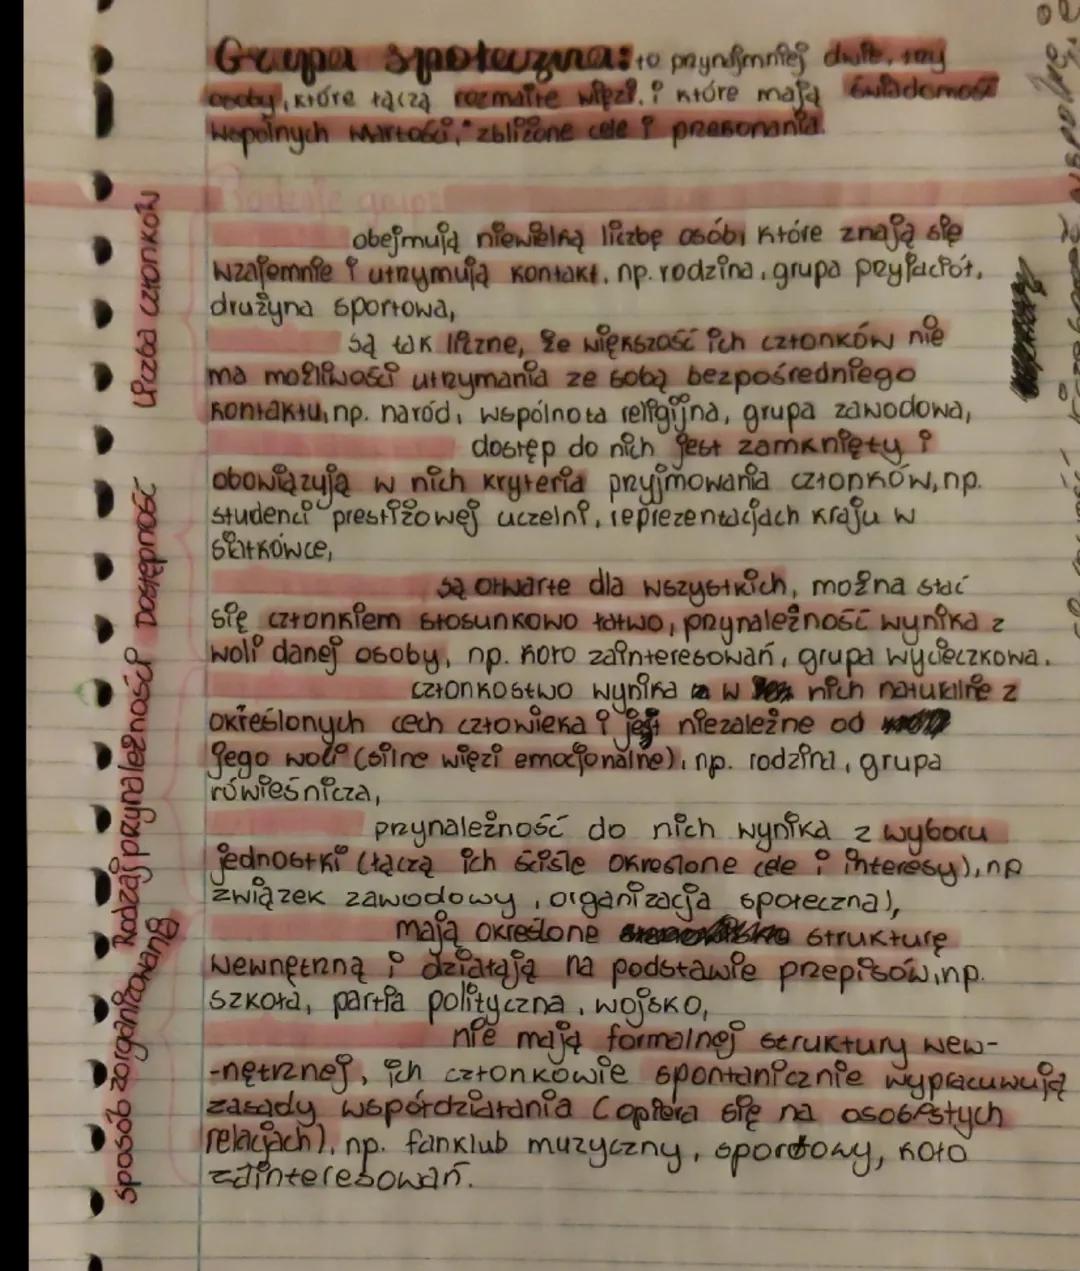 Grupa społeczna: to przynajmniej dwie, trzy
osoby, które łączą rozmaite więzi i które mają świadomość
wspólnych wartości, zbliżone cele i przekonania.
Rodzaje grup:
obejmują niewielką liczbę osób, które znają się
wzajemnie i utrzymują kontakt, np. rodzina, grupa przyjaciół,
drużyna sportowa,
są tak liczne, że większość ich członków nie
ma możliwości utrzymania ze sobą bezpośredniego
kontaktu, np. naród, wspólnota religijna, grupa zawodowa,
dostęp do nich jest zamknięty i
obowiązują w nich kryteria przyjmowania członków, np.
studenci prestiżowej uczelni, reprezentacjach kraju w
siatkówce,
są otwarte dla wszystkich, można stać
się członkiem stosunkowo łatwo, przynależność wynika z
woli danej osoby, np. koło zainteresowań, grupa wycieczkowa.
członkostwo wynika w nich naturalnie z
określonych cech człowieka i jest niezależne od
jego woli (silne więzi emocjonalne), np. rodzina, grupa
rówieśnicza,
przynależność do nich wynika z wyboru
jednostki (łączą ich ściśle określone cele i interesy), np
związek zawodowy, organizacja społeczna),
mają określone strukturę
wewnętrzną i działają na podstawie przepisów, np.
szkoła, partia polityczna, wojsko,
nie mają formalnej struktury wew-
-nętrznej, ich członkowie spontanicznie wypracuwują
zasady współdziałania (opiera się na osobistych
relacjach), np. fanklub muzyczny, sportowy, koło
zainteresowań.
Liczba członków
Dostępność
Rodzaj przynależności
sposób zorganizowania